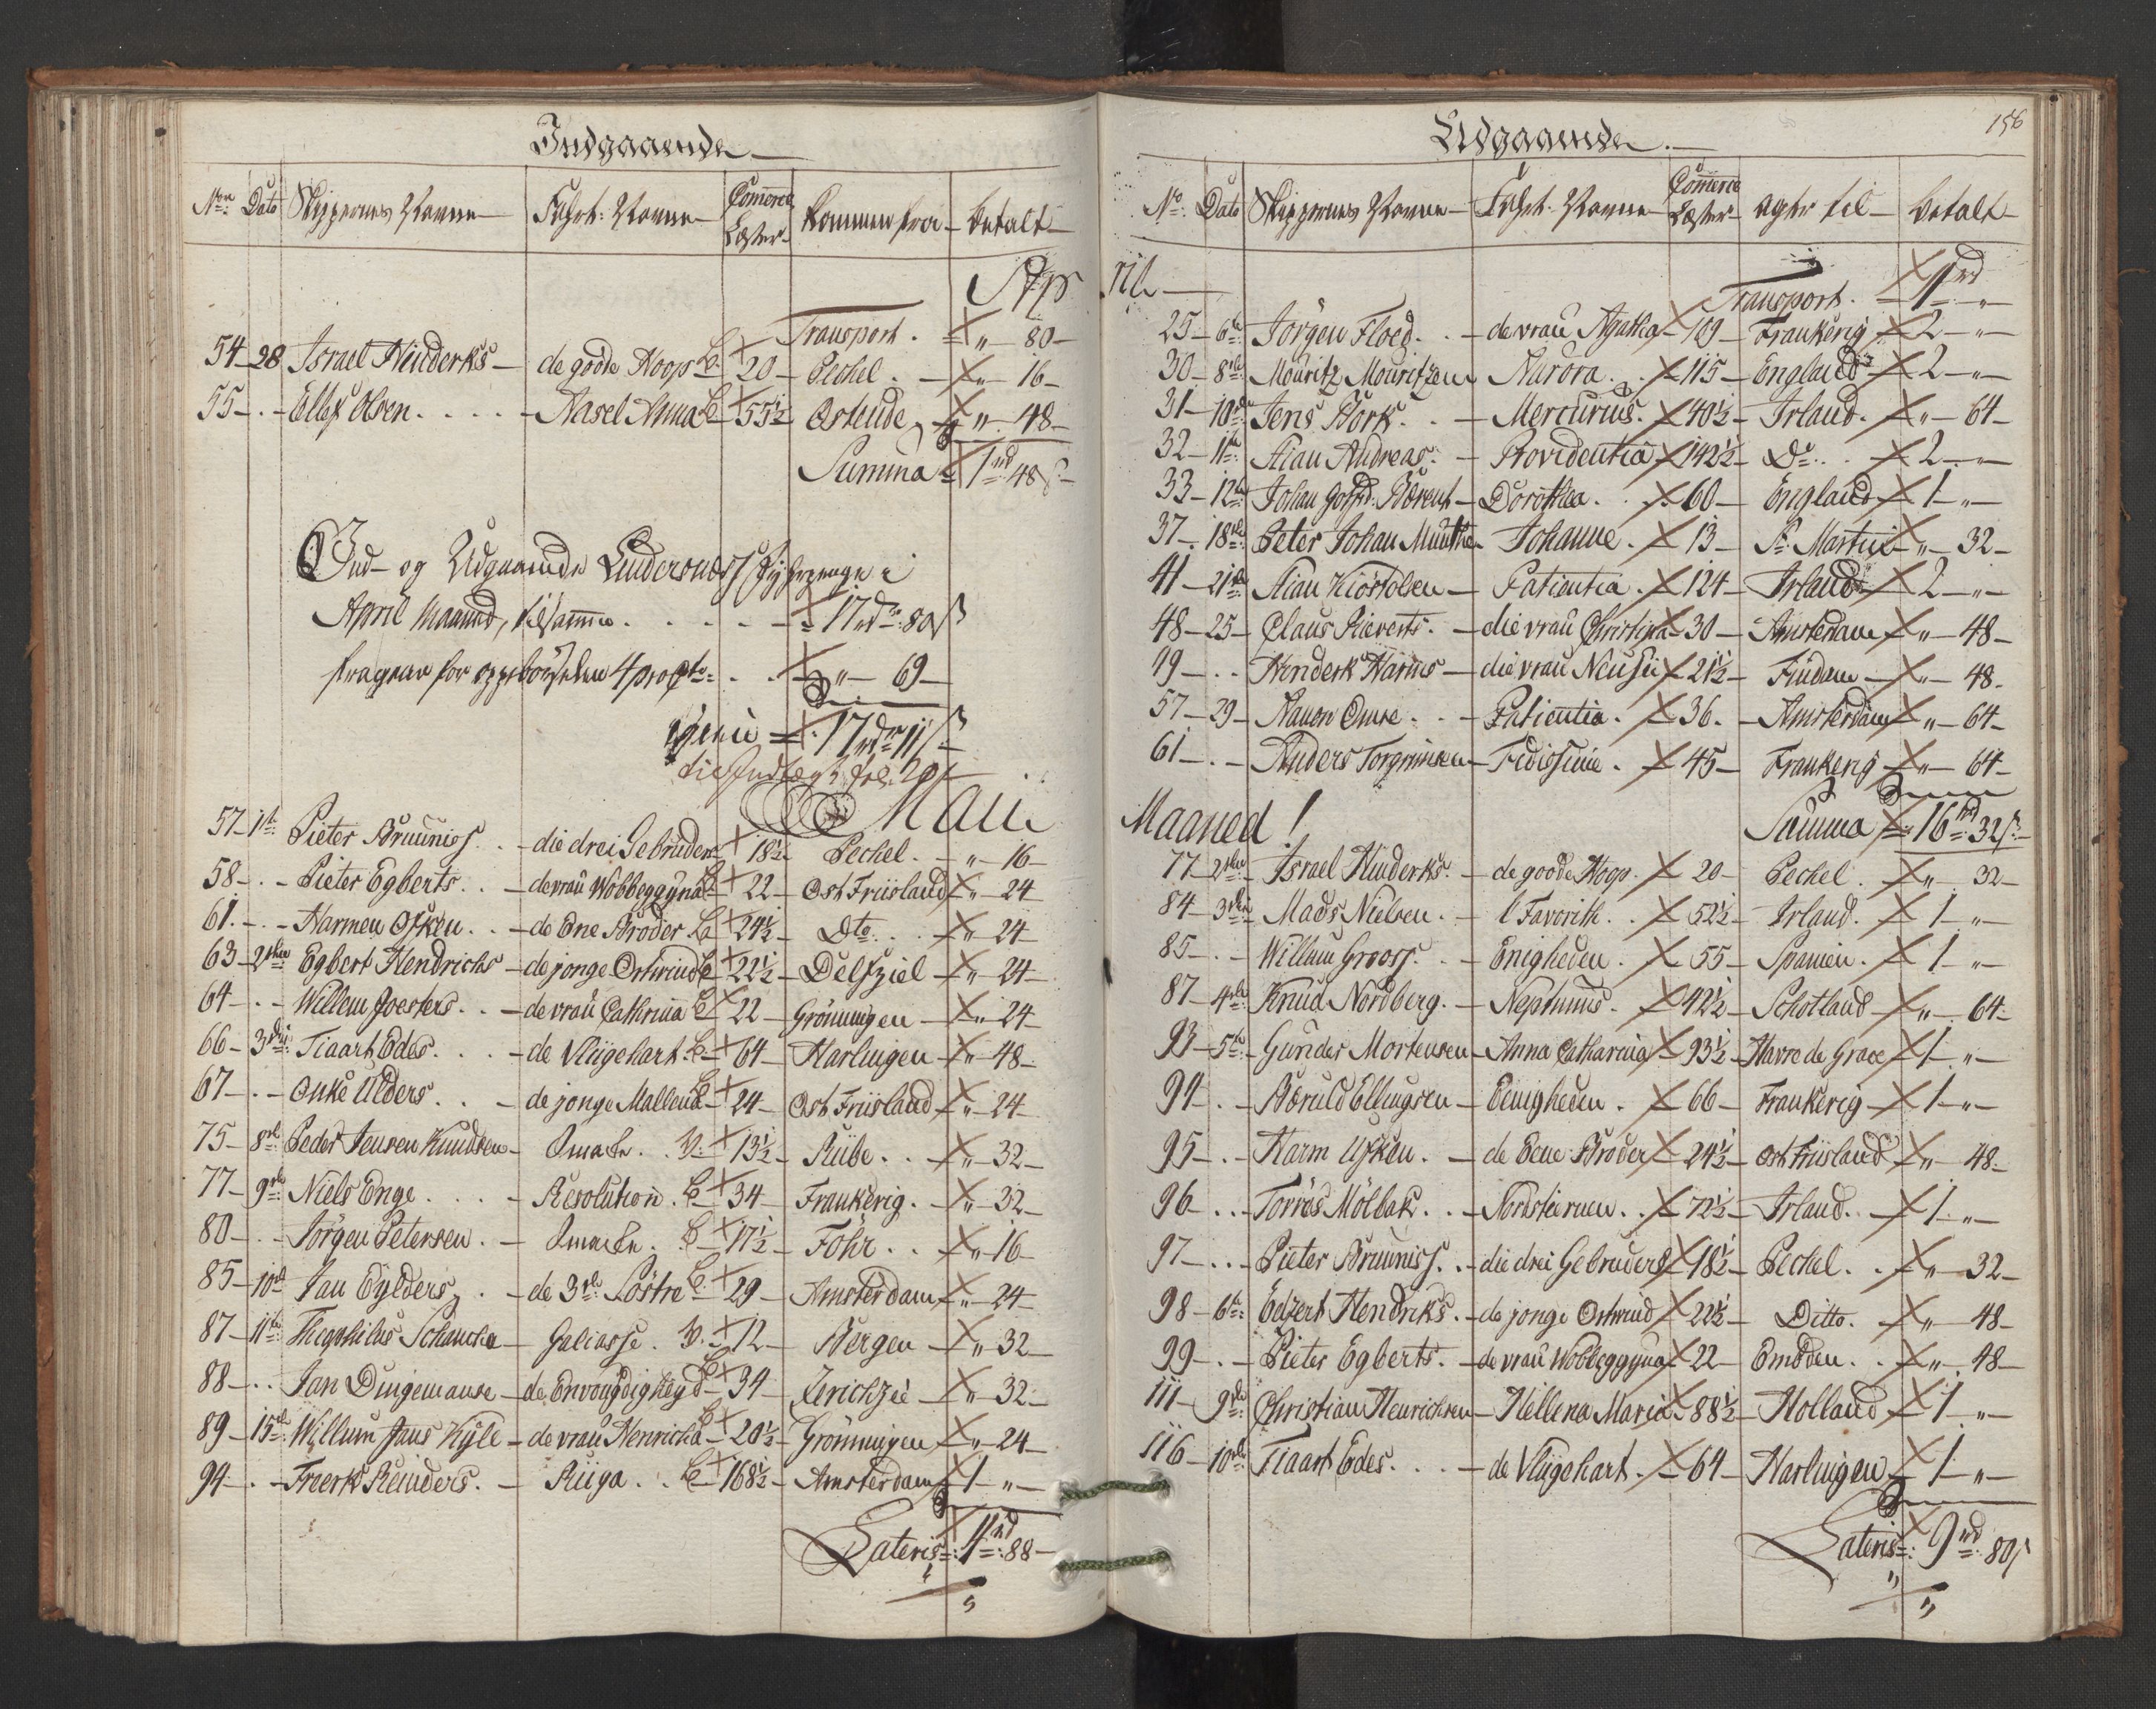 Indgaaende
No: Dato Skippernes Navne Fahrt: Navne Commerce Læster kommen fra betalt
Ap
Transport. " 80
54 28 Israel Hinderks de gode Hoop L 20 Pechel. " 16
55 - Ellef Olsen. Nasel Anna L 55½ Ostende " 48
Summa 1 rd 48 s
Ind- og Udgaaende Lindersnæss Fyhrpenge i
April Maaned, tilsamme 17 rd 80 s
fragaar for oppebørselen 4 procto: " 69
17 rd 11 s
57 1te Pieter Bruuniss. die drei Gebrüder 18½ Pechel. " 16
58 - Pieter Egberts. de vrau Wobbeggyna L 22 Ost Friisland " 24
61. - Harmen Ofken. de Ene Broder L 24½ Dto. " 24
63 2den Egbert Hendrichs de jonge Ostwind L 22½ Delfziel " 24
64 - Willem Joesters. de vrau Cathrina L 22 Grönningen " 24
66 3die Tiaart Edes. de Vliigehart L 64 Harlingen " 48
67 - Onke Ulders. de jonge Mallena L 24 Ost Friisland " 24
75 8de Peder Jensen Knudsen 13½ Riibe. " 32
77 9de Niels Enge. Resolution. L 34 Frankerig. " 32
80 - Jörgen Petersen. L 17½ Föhr. " 16
85 10de Jan Eylders. de 3de Söstre L 29 Amsterdam " 24
87 11te Theophilus Schancha Galiasse. 12 Bergen " 32
88 - Jan Dingemanse de Envougdigheyd L 34 Zerichzée " 32
89 15de Willum Jans Kyle de vrau Henricha L 20½ Grönningen " 24
94 - Freerk Reinders. Riiga. L 168½ Amsterdam 1 "
Lateris 11 rd 88
156
Udgaaende.
No: Dato Skippernes Navne Fahrt: Navne Commerce Læster agter til betalt
ril
Transport. 1 rd "
25 6te Jörgen Floed. de vrau Agatha 109 Frankerig 2 "
30 8de Mouritz Mouritzen Aurora. 115 England 2 "
31 10de Jens Bork. Mercurius. 40½ Irland. " 64
32 11te Aian Andreas. Providentia 142½ Do. 2 "
33 12te Johan Gotfrd: Bærent Dorothea. 60 England 1 "
37 18de Peter Johan Munthe Johanne. 13 St. Martin " 32
41 21de Aian Kiöstolsen Patientia. 124 Irland 2 "
48 25 Claus Sieverts. die vrau Christina 30 Amsterdam " 48
49 - Henderk Harms die vrau 21½ " 48
57 29 Omke. Patientia. 36. Amsterdam " 64
61 - Anders Torgrimsen Fedissime. 45 Frankerig " 64
Summa 16 rd 32 s
Maii Maaned!
77 2den Israel Hinderks. de goode Hoop. 20 Pechel. " 32
84 3die Mads Nielsen. l'Favorith. 52½ Irland. 1 "
85 - Willum Grooss. Enigheden. 55 Spanien. 1 "
87 4de Knud Nordberg. Neptunus. 42½ Schotland " 64
93 5te Gunder Mortensen Anna Catharina 93½ Havre de Grace 1 "
94 - Bæruld Ellingsen Eenigheden. 66 Frankerig 1 "
95 - Harm Ufken. de Eene Broder 24½ Ost Friisland " 48
96 - Torrös Mölbak. Nordstiernen. 72½ Irland. 1 "
97 - Pieter Bruuniss. die drei Gebruders 18½ Pechel. " 32
98 6te Edzert Hendriks. de jonge Ostwind 22½ Ditto. " 48
99 - Pieter Egberts. de vrau Wobbeggyna 22 Embden. " 48
111 9de Christian Henrichsen Hellena Maria 88½ Holland 1 "
116 10de Tiaart Edes. de Vliigehart. 64 Harlingen 1 "
Lateris 9 rd 80 s